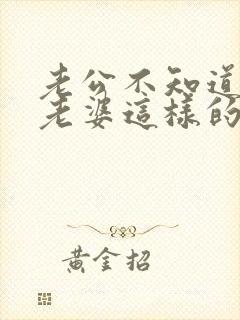 老公不知道
老婆這樣的
黃金招